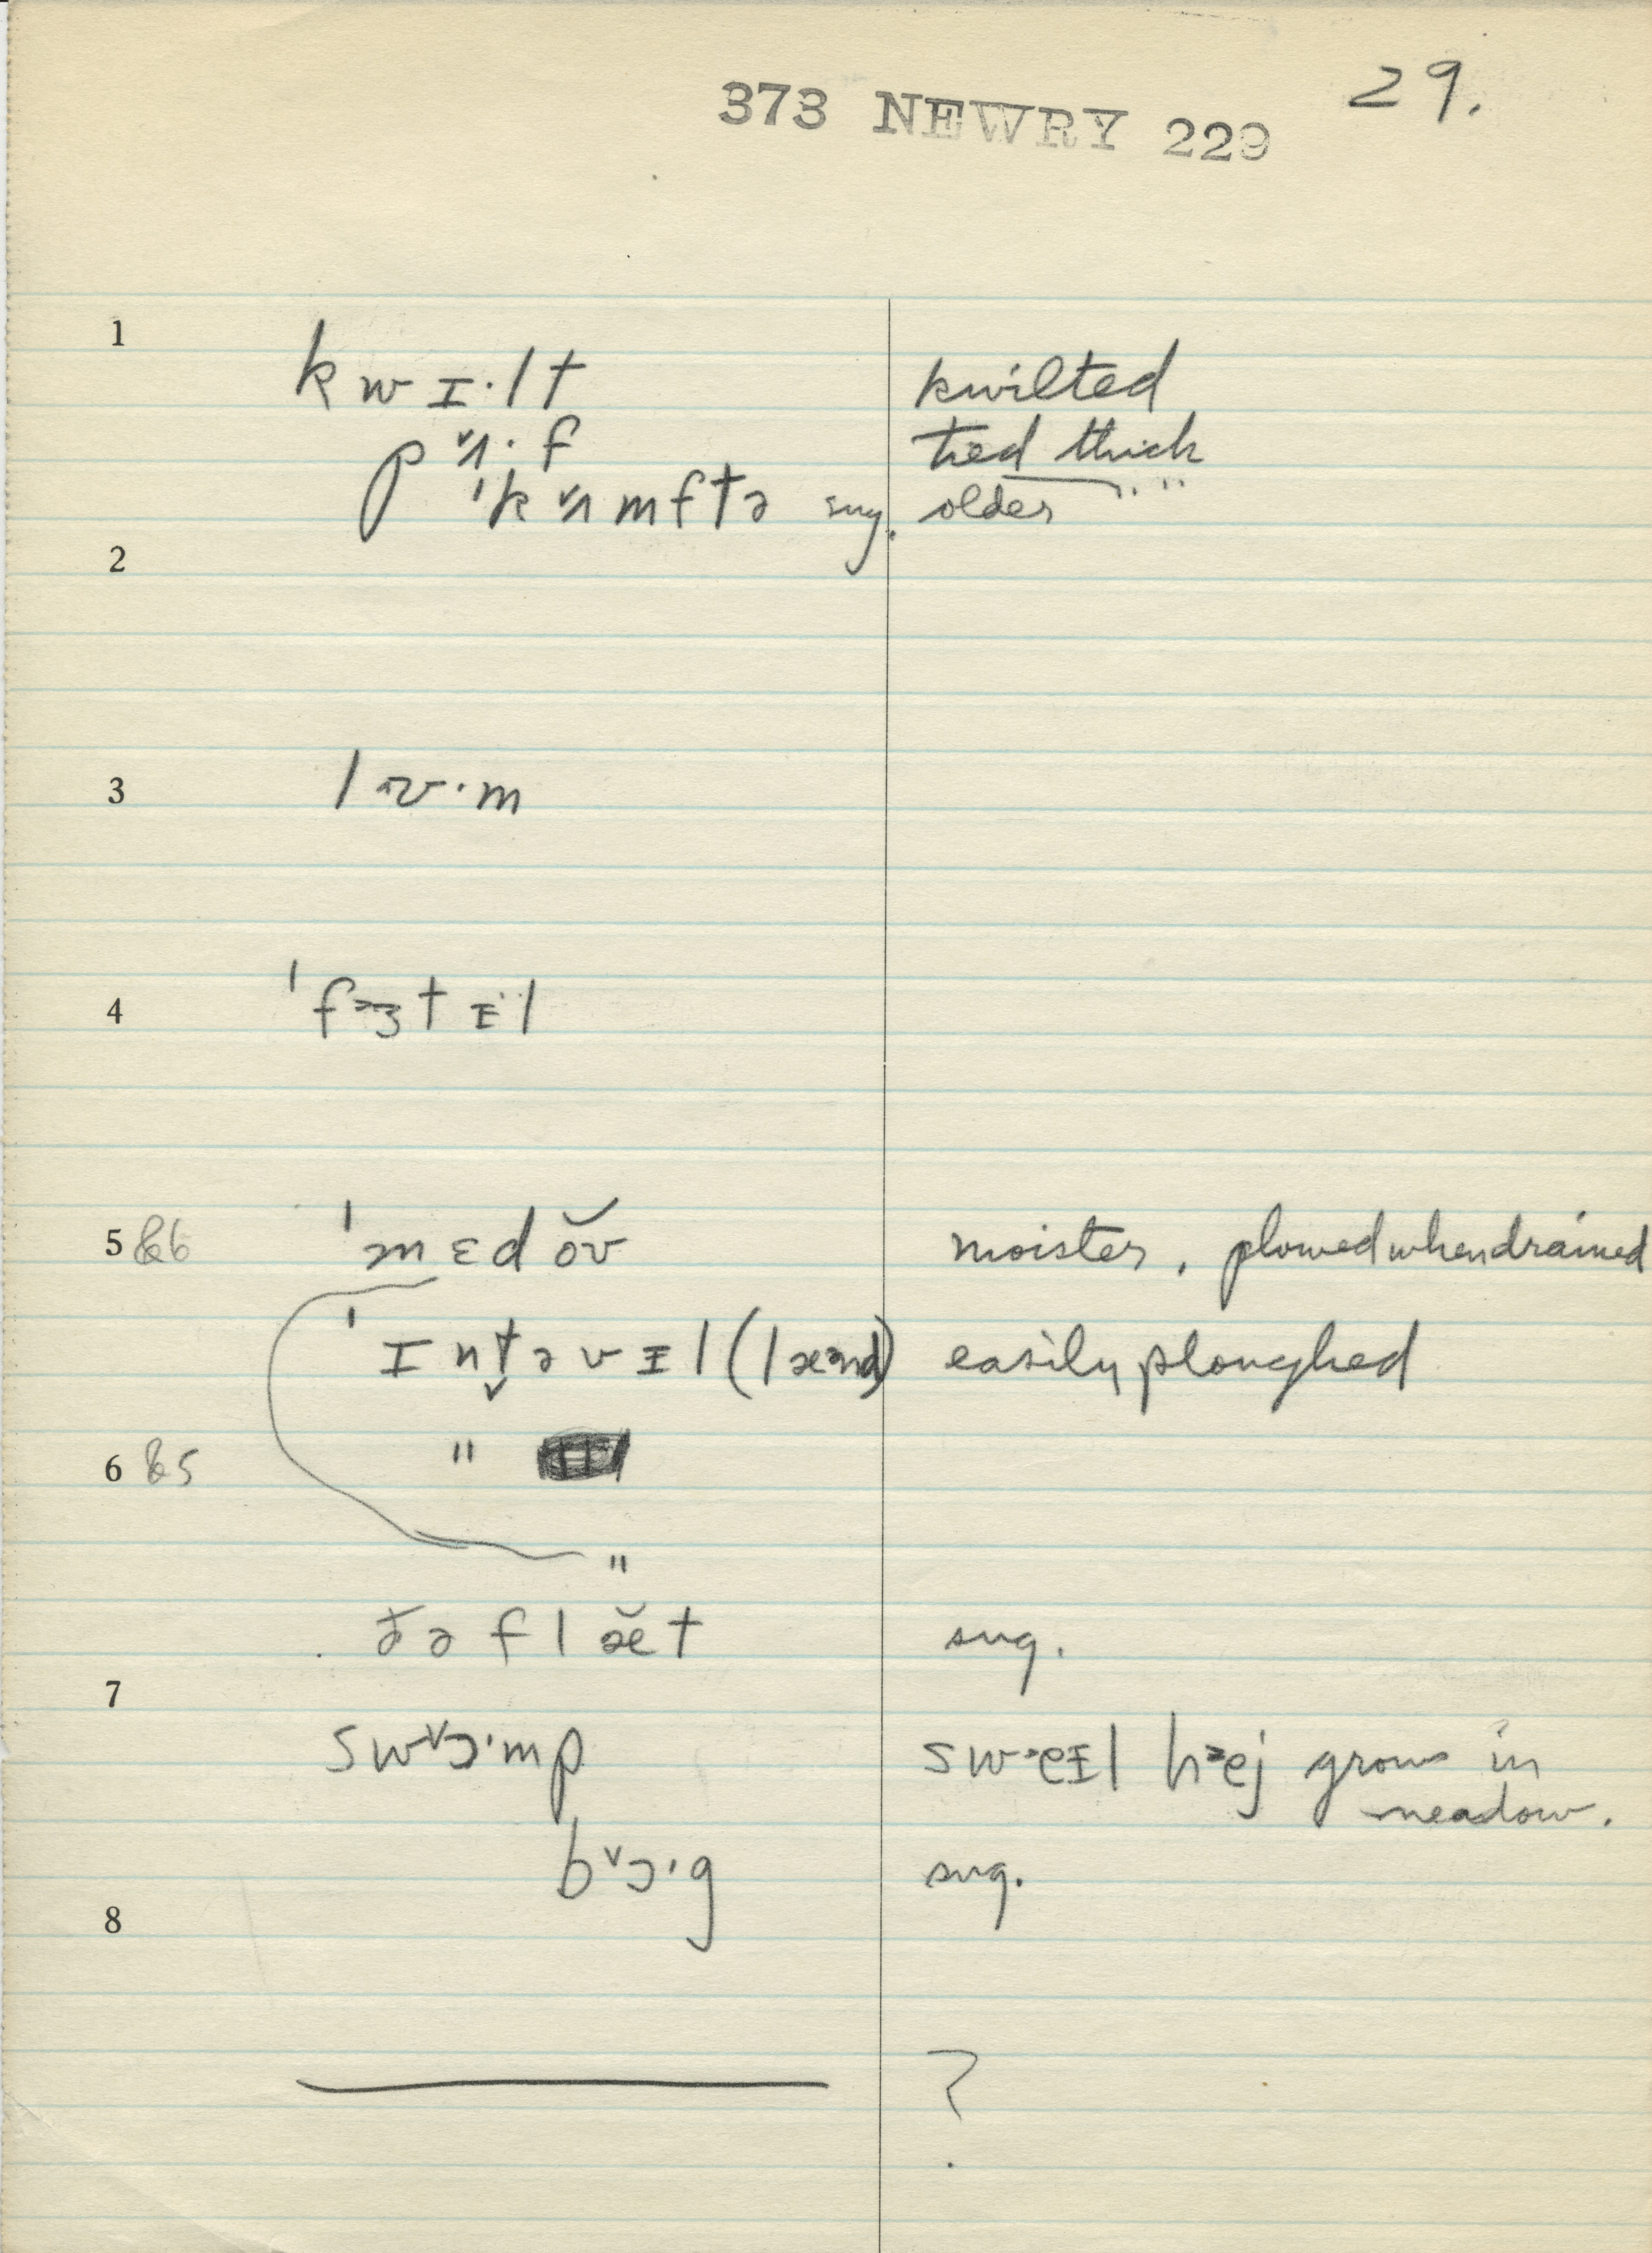 29.
373 NEWRY 229
1
kwɪ·lt kwilted
pʌ˅·f tied thick
ˈkʌ˅mftə sug. older " "
2
3
lu·m
4
ˈfɜ˃tᵻl
5 & 6
ˈmɛdŏʊ moister, plowed when drained
ˈɪnt̬əvᵻl (læ˃nd) easily ploughed
"
6 & 5
"
ðə flæ̆t sug.
7
swɔ˅·mp swe˃ᵻl he˃j grows in
meadow.
bɔ˅·g sug.
8
?